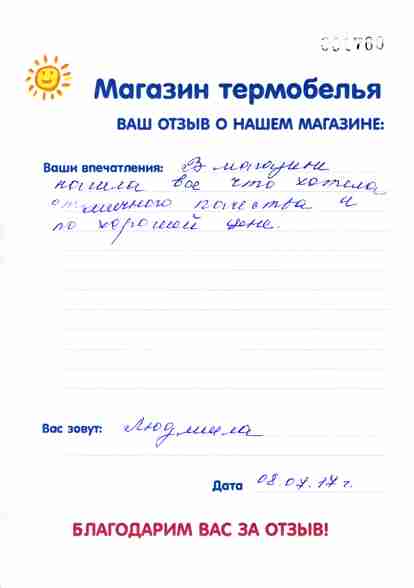 000760
Магазин термобелья
ВАШ ОТЗЫВ О НАШЕМ МАГАЗИНЕ:
Ваши впечатления: В магазине
нашла все что хотела
отличного качества и
по хорошей цене.
Вас зовут: Людмила
Дата 08.07.17 г.
БЛАГОДАРИМ ВАС ЗА ОТЗЫВ!